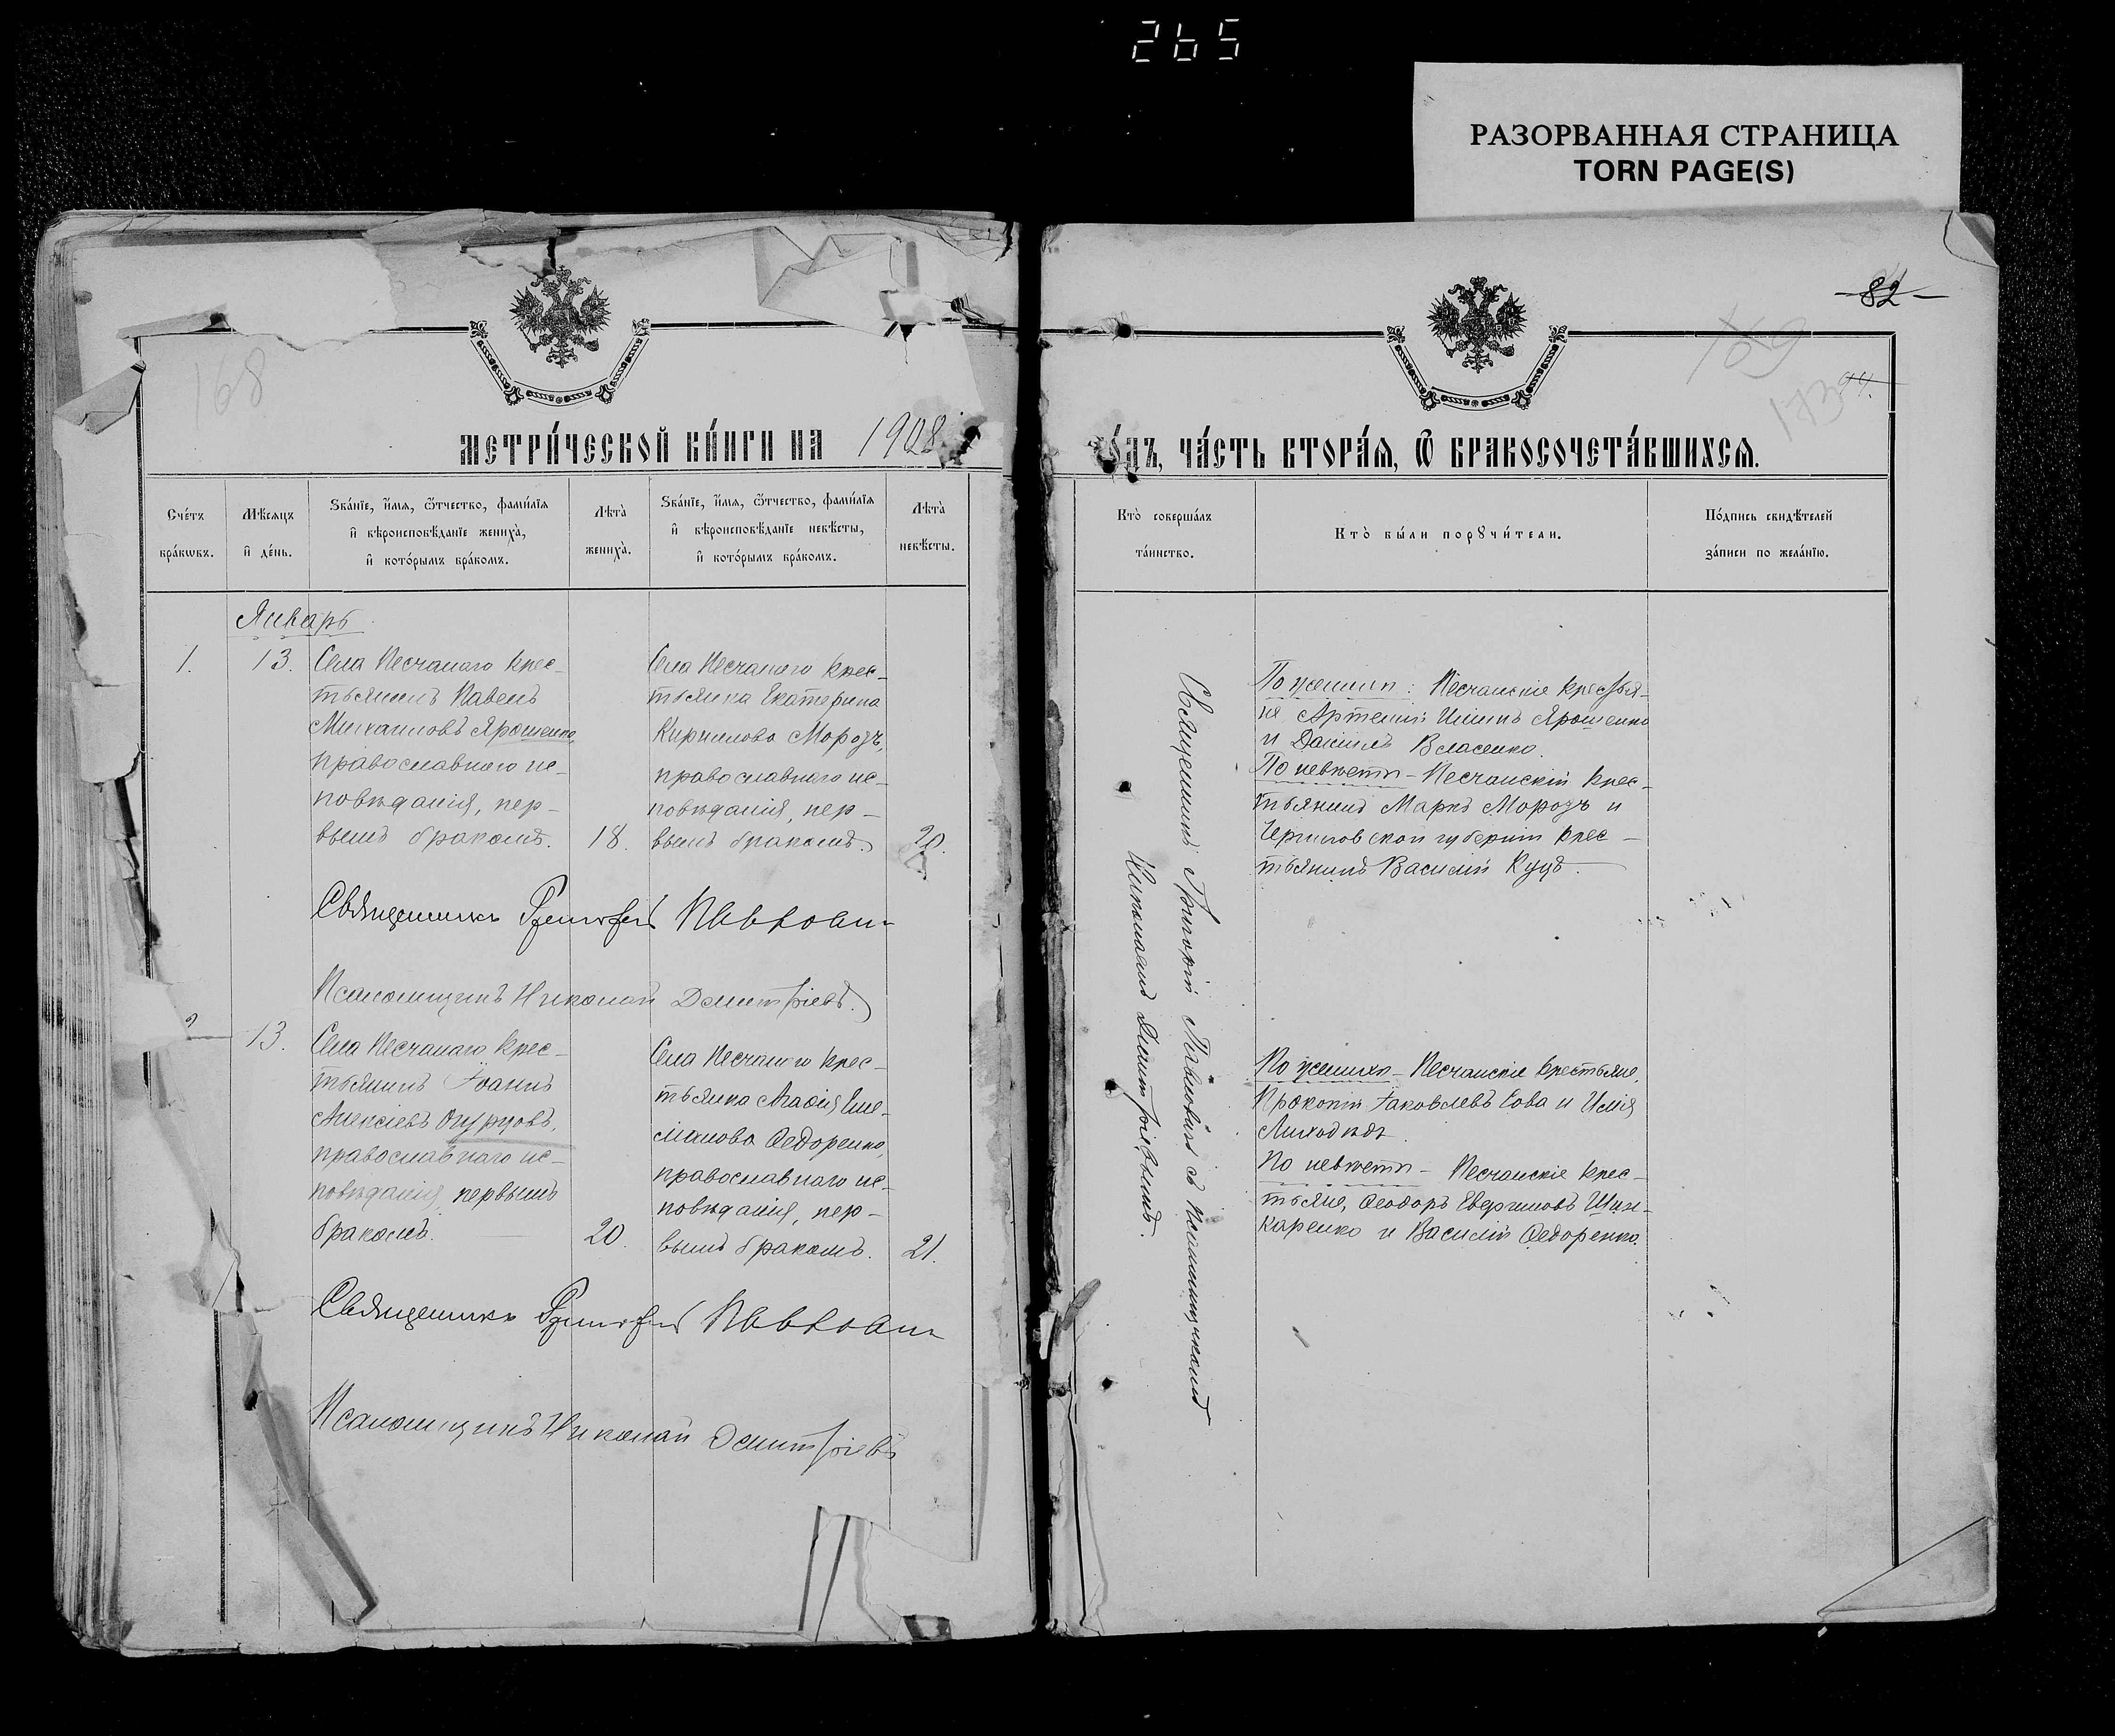 265
РАЗОРВАННАЯ СТРАНИЦА
TORN PAGE(S)
168
МЕТРИ́ЧЕСКОЙ КНИ́ГИ НА 1908
Сче́тъ бра́кѡвъ.
Мѣ́сѧцъ и҆ де́нь.
Ѕва́нїе, и҆́мѧ, ѻ҆́тчество, фами́лїѧ
и҆ вѣроисповѣ́данїе жениха̀,
и҆ кото́рымъ бра́комъ.
Лѣта̀ жениха̀.
Ѕва́нїе, и҆́мѧ, ѻ҆́тчество, фами́лїѧ
и҆ вѣроисповѣ́данїе невѣ́сты,
и҆ кото́рымъ бра́комъ.
Лѣта̀ невѣ́сты.
Январь
1.
13.
Села Песчанаго крес-
тьянинъ Павелъ
Михаиловъ Ярошенко,
православнаго ис-
повѣданія, пер-
вымъ бракомъ.
18.
Села Песчанаго крес-
тьянка Екатерина
Кирилова Морозъ,
православнаго ис-
повѣданія, пер-
вымъ бракомъ.
20.
Священникъ Григорій Павловичъ
Псаломщикъ Николай Димитріевъ.
2
13.
Села Песчанаго крес-
тьянинъ Іоаннъ
Алексіевъ Огурцовъ,
православнаго ис-
повѣданія, первымъ
бракомъ.
20.
Села Песчанаго крес-
тьянка Агафія Еме-
ліанова Ѳедоренко,
православнаго ис-
повѣданія, пер-
вымъ бракомъ.
21.
Священникъ Григорій Павловичъ
Псаломщикъ Николай Димитріевъ
82
169
173
94.
о́дъ, ча́сть втора́ѧ, ѽ бракосочета́вшихсѧ.
Кто̀ соверша́лъ
та́инство.
Кто̀ бы́ли порꙋчи́тели.
По́дпись свидѣ́телей
за́писи по жела́нїю.
Священникъ Григорій Павловичъ съ псаломщикомъ
Николаемъ Димитріевымъ.
По женихѣ: Песчанскіе крестья-
не Артемій Ярошенко
и Даніилъ Власенко.
По невѣстѣ - Песчанскій крес-
тьянинъ Маркъ Морозъ и
Черниговской губерніи крес-
тьянинъ Василій Куцъ.
По женихѣ - Песчанскіе крестьяне,
Прокопій Іаковлевъ Сова и Илія
Лиходѣдъ.
По невѣстѣ - Песчанскіе крес-
тьяне, Ѳеодоръ Шин-
каренко и Василій Ѳедоренко.